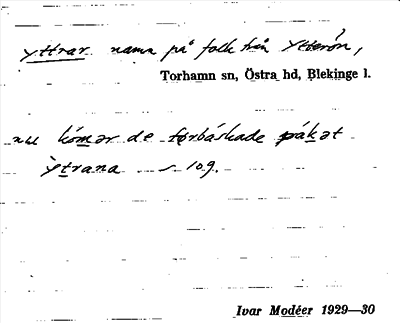 yttrar namn på folk från Ytterön,
Torhamn sn, Östra hd, Blekinge l.
nu kómər de forbáskade pákət
ỳtrana s. 109.
Ivar Modéer 1929—30